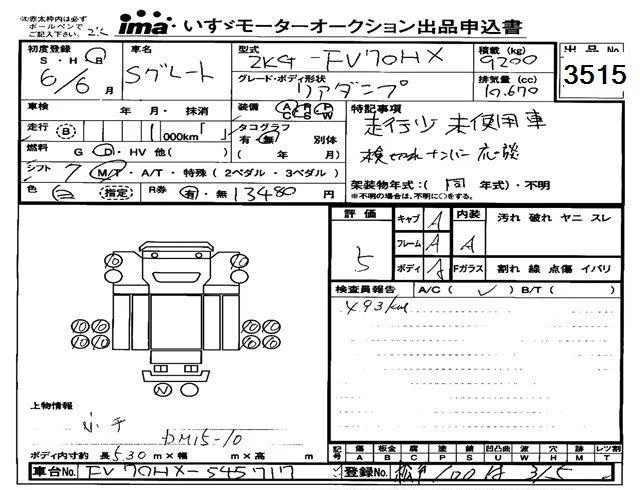 ※赤太枠内は必ず
ボールペンで
ご記入下さい。
ima いすゞモーターオークション出品申込書
初度登録 S・H・R 6/6月
車名 Sグレート
型式 2KG-FV70HX
積載 (kg) 9200
出品No 3515
グレード・ボディ形状 リアダンプ
排気量 (cc) 10,670
車検 年 月・抹消
装備 A C R S P W
特記事項
走行 B 1 000km「 」
タコグラフ 有・無 別体 ( 年 月)
走行少 未使用車
燃料 G D・HV 他( )
検切れナンバー応談
シフト 7 M/T・A/T・特殊 (2ペダル・3ペダル)
架装物年式:( 同 年式)・不明
※不明の場合は、不明に○をする。
色 指定 R券 有・無 13480 円
評価 5
キャブ A 内装 A 汚れ 破れ ヤニ スレ
フレーム A
ボディ A Fガラス 割れ 線 点傷 イバリ
検査員報告 A/C ( ✓ ) B/T ( )
493km
10 10
10 10 10 10
10 10 10 10
N
上物情報
DM15-10
ボディ内寸約 長5.30m×幅 m×高 m
記号 傷 A 板金 B 腐 C 塗 P 錆 S 凹凸曲 U 波 W 穴 H 跡 M レツ割 T
車台No. FV70HX-S45717
登録No. 100 は 315